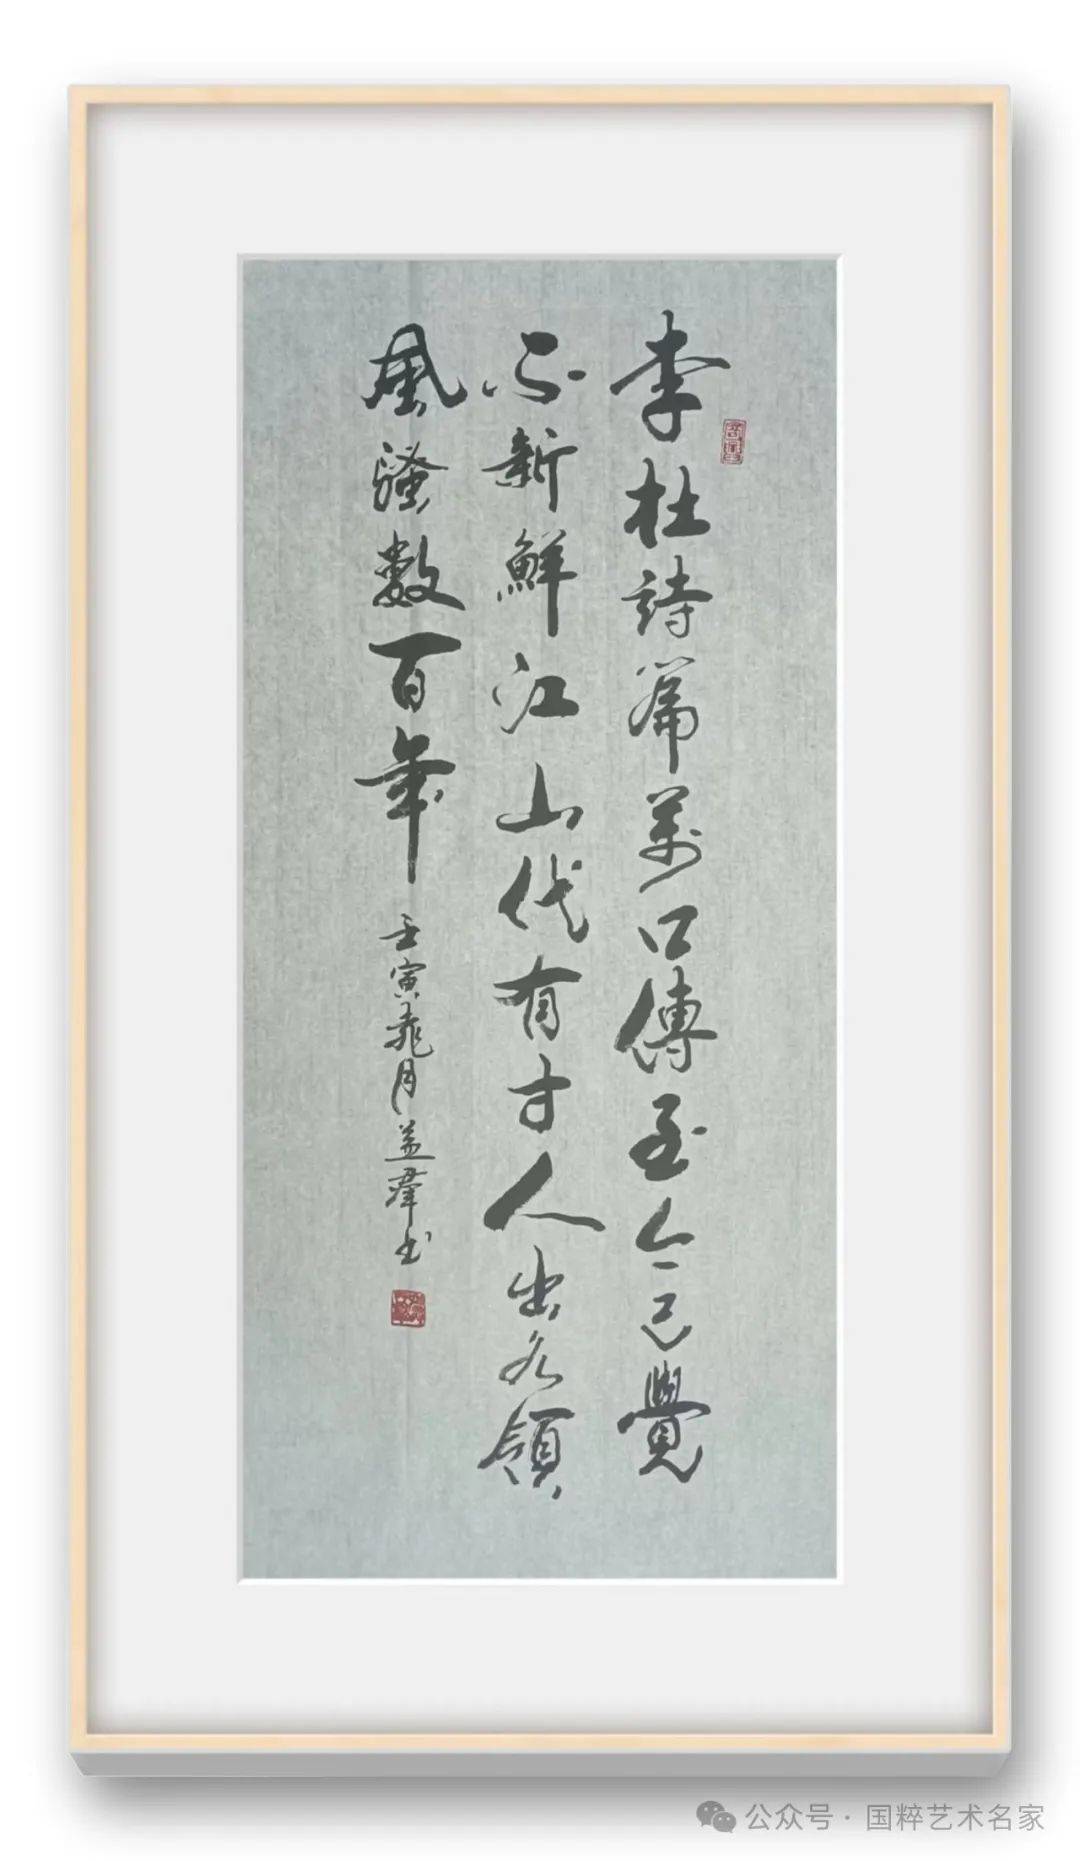 李杜詩篇萬口傳至今已覺
不新鮮江山代有才人出各領
風騷數百年
壬寅桃月益群书
公众号·国粹艺术名家